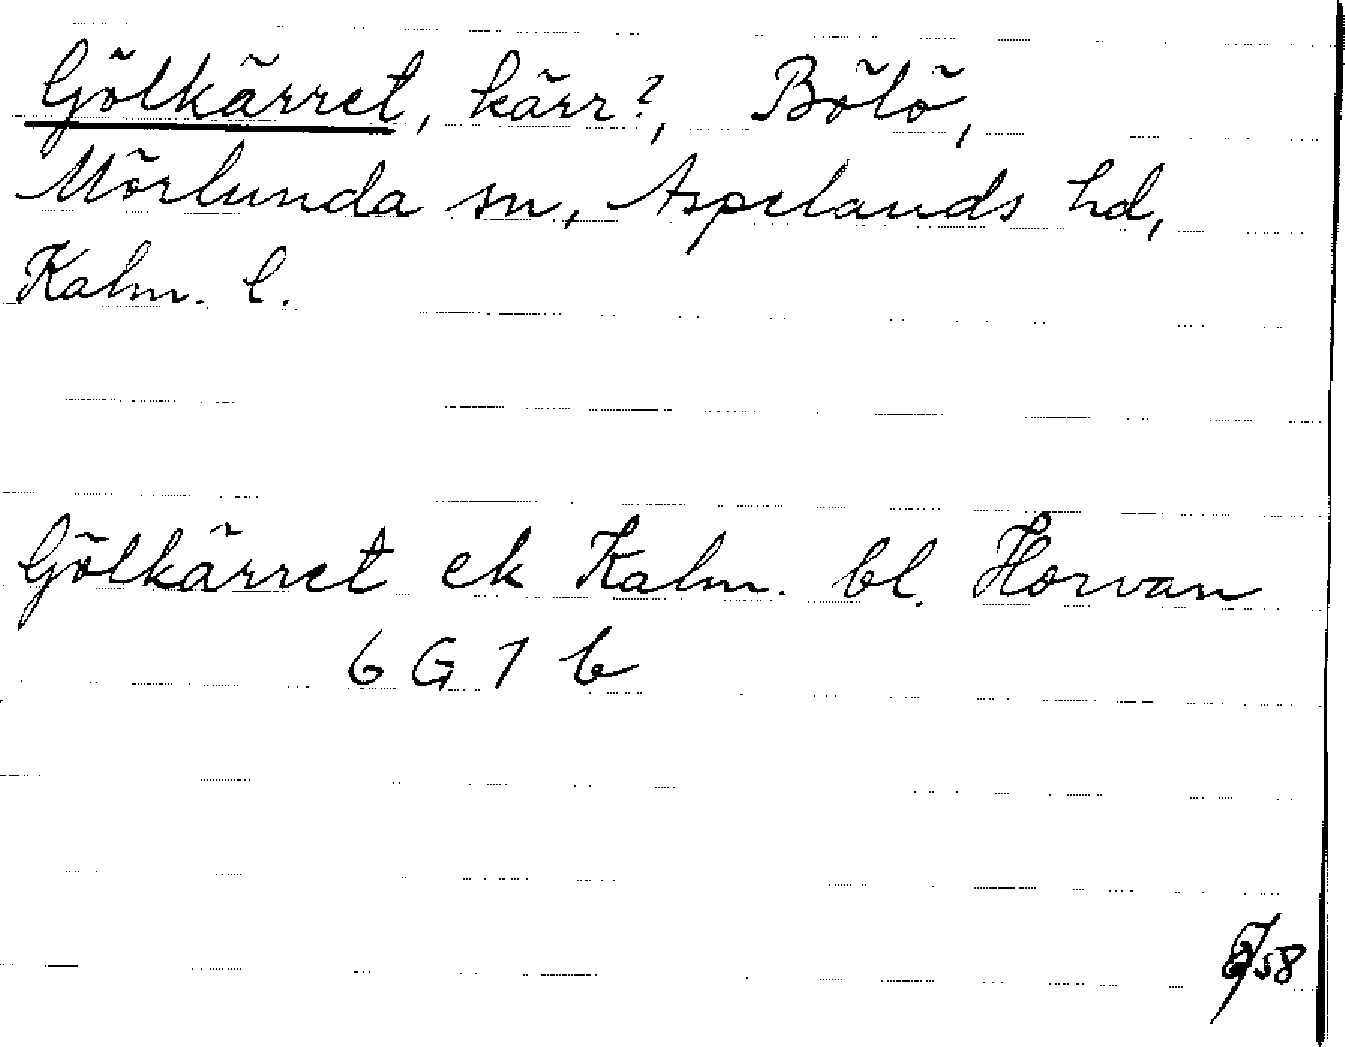 Gölkärret, kärr?, Bölö,
Mörlunda sn, Aspelands hd,
Kalm. l.
Gölkärret ek Kalm. bl. Horvan
6 G 1 b